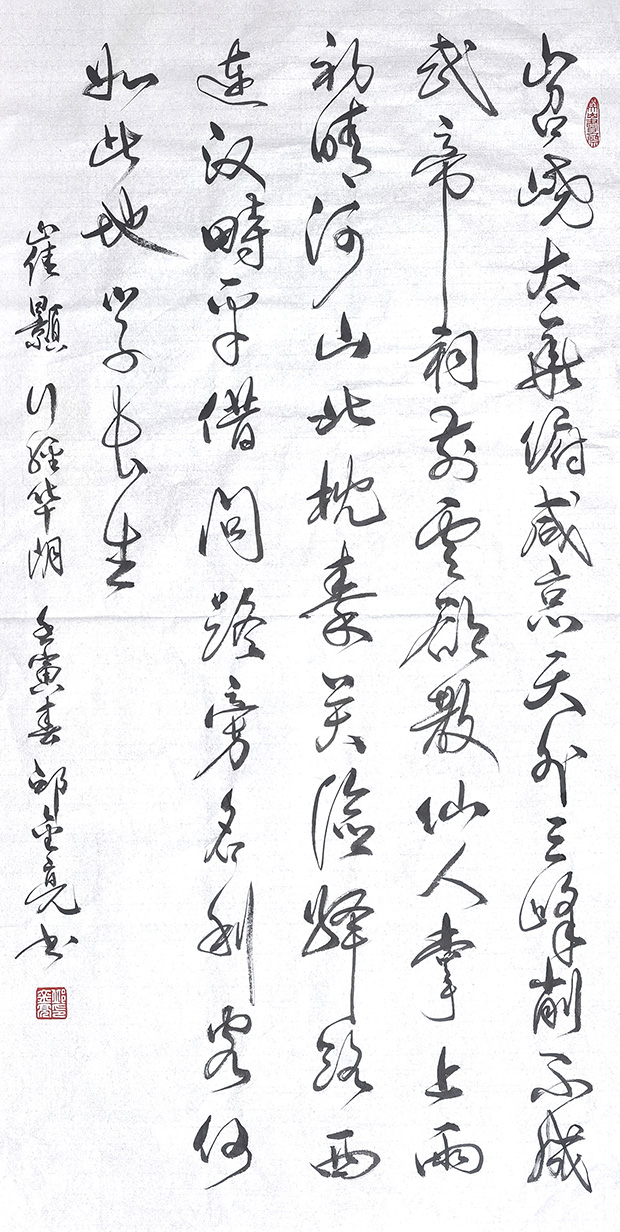 岧峣太華俯咸京天外三峰削不成
武帝祠前雲欲散仙人掌上雨
初晴河山北枕秦关險驿路西
连汉畤平借问路旁名利客何
如此地学长生
崔顥行經华阴 壬寅春 邱金亮书